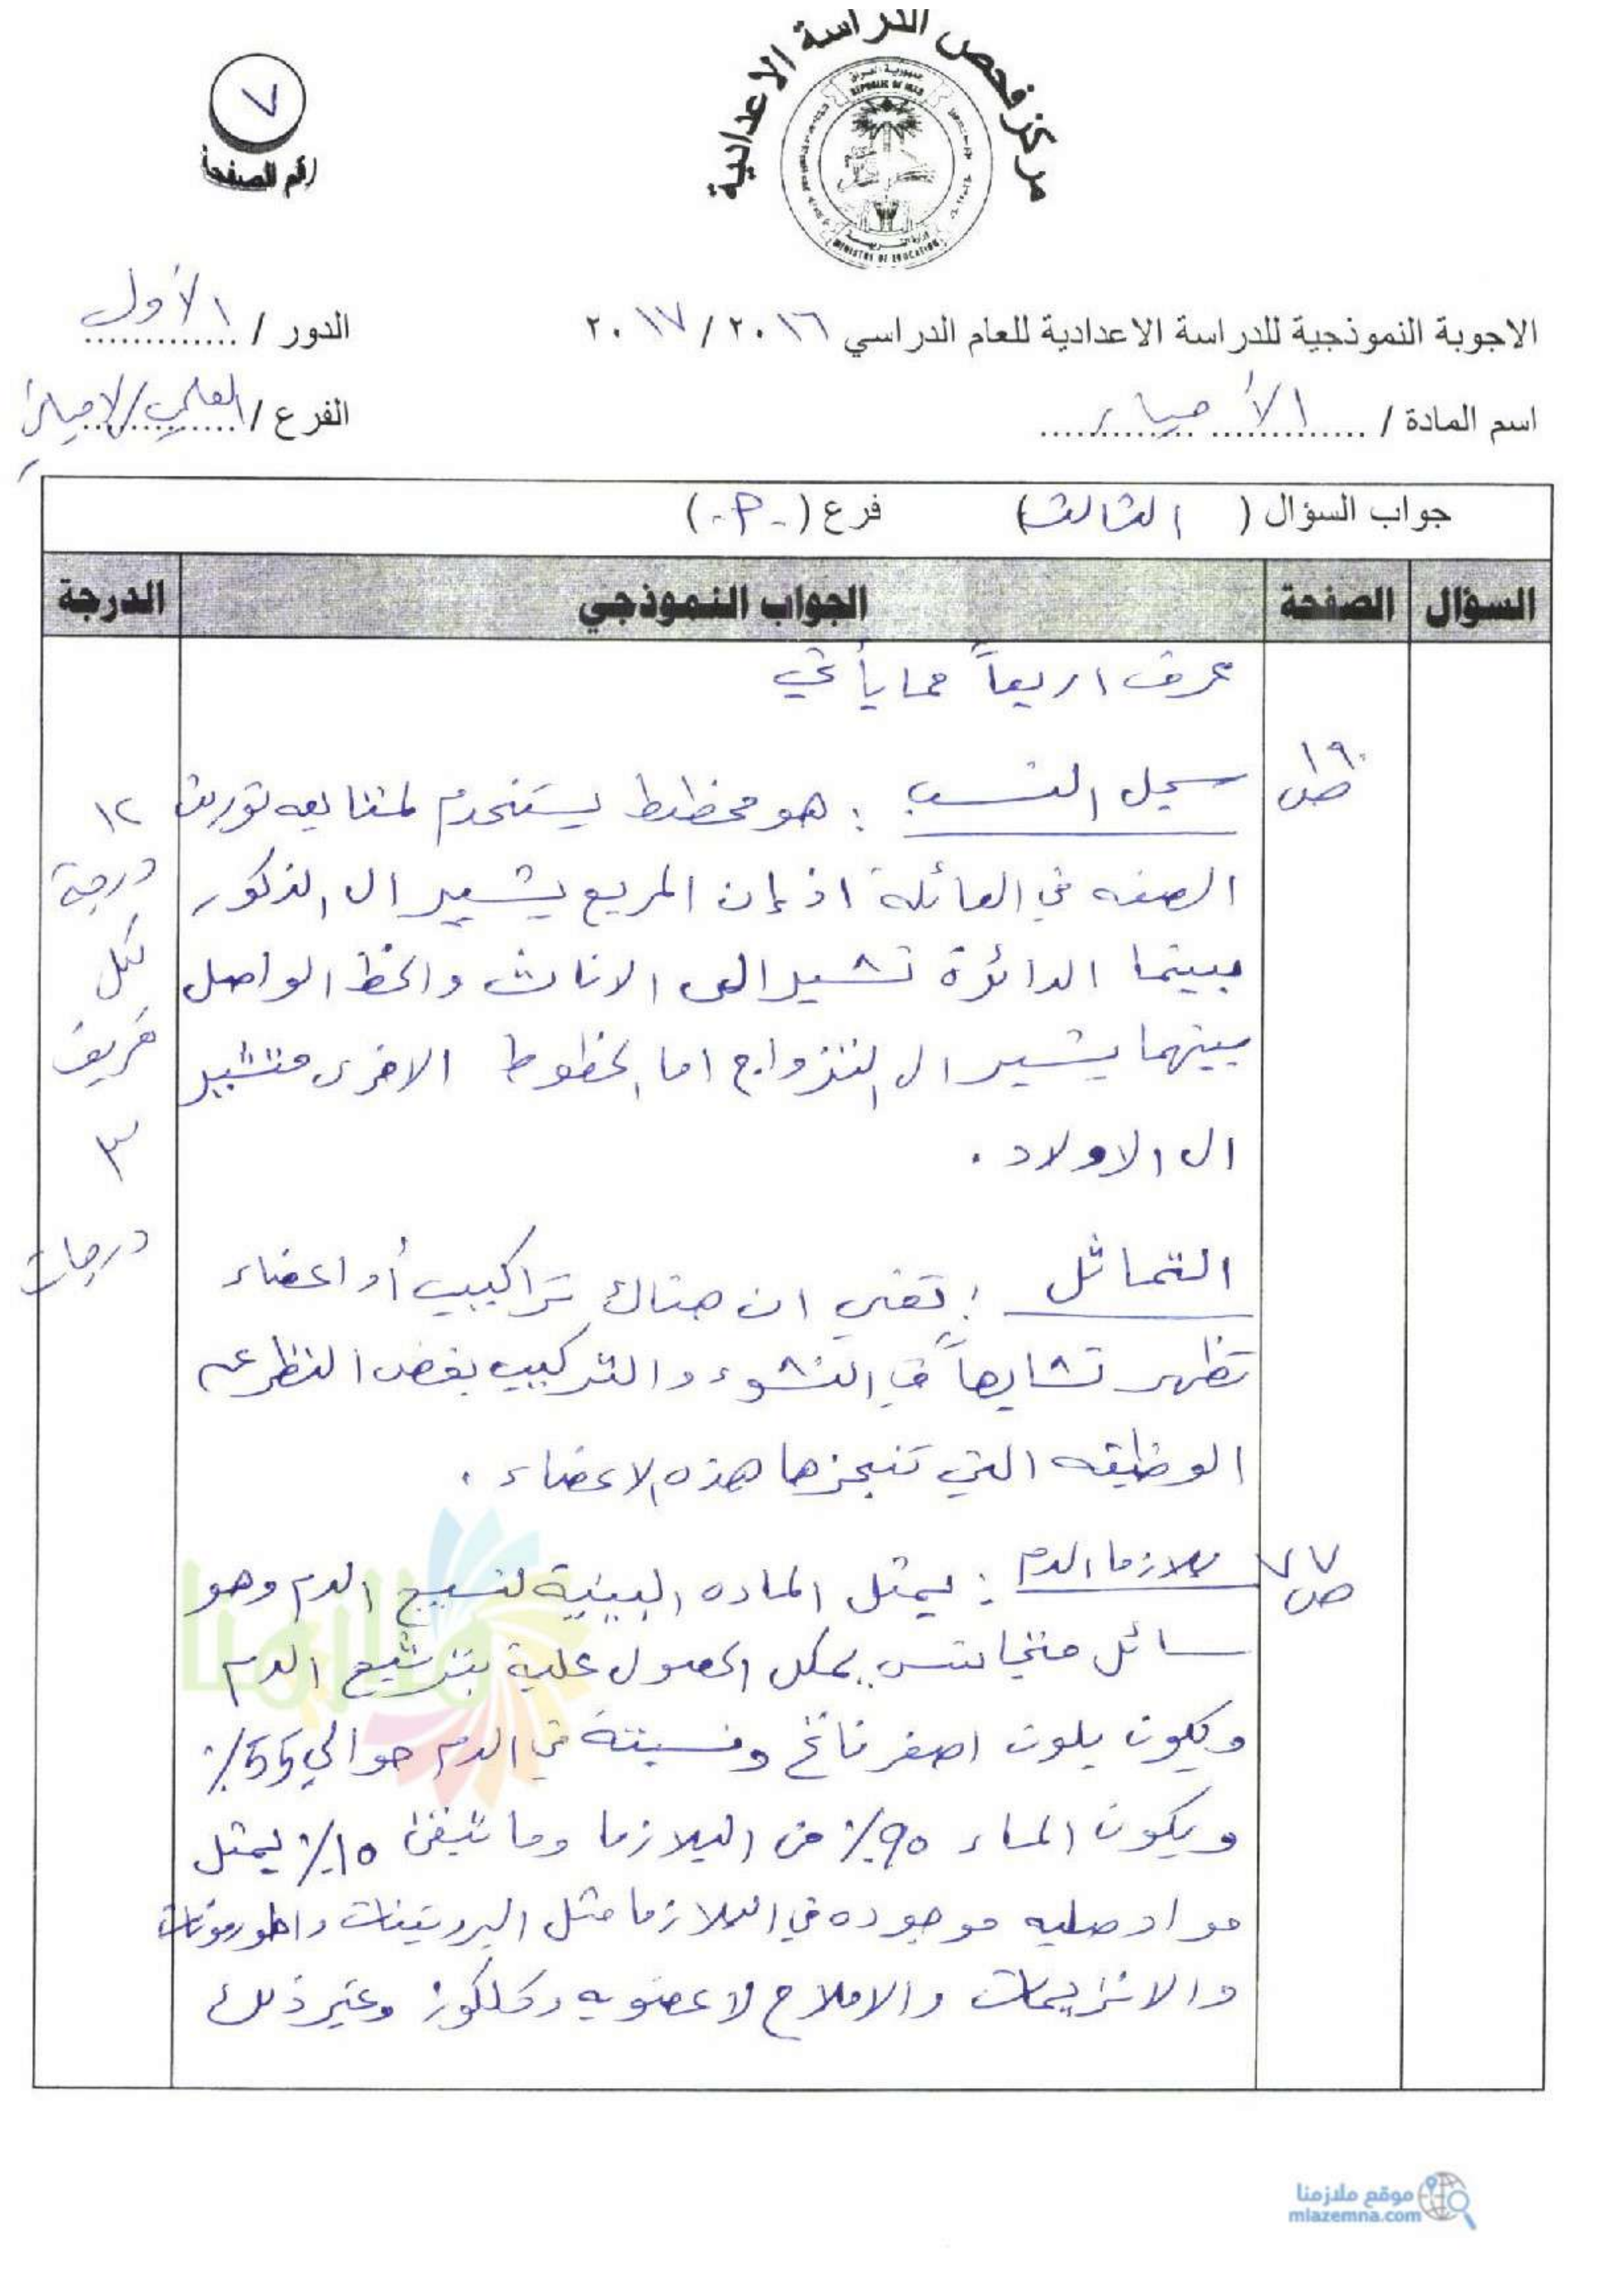 مركز فحص الدراسة الاعدادية
جمهورية العراق
REPUBLIC OF IRAQ
وزارة التربية
MINISTRY OF EDUCATION
٧
رقم الصفحة
الاجوبة النموذجية للدراسة الاعدادية للعام الدراسي ٢٠١٦ / ٢٠١٧
الدور / الأول
اسم المادة / الأحياء
الفرع / العلمي/الاحيائي
جواب السؤال ( الثالث ) فرع ( -P- )
السؤال الصفحة الجواب النموذجي الدرجة
عرف اربعاً مما يأتي
ص ١٩٠
سجل النسب : هو مخطط يستخدم لمتابعه توريث
الصفه في العائلة اذ إن المربع يشير الى الذكور
بينما الدائرة تشير الى الاناث والخط الواصل
بينهما يشير الى التزواج اما الخطوط الاخرى فتشير
الى الاولاد .
١٢
درجة
لكل
تعريف
٣
درجات
التماثل : تعني ان هناك تراكيب أو اعضاء
تظهر تشابهاً في النشوء والتركيب بغض النظر عن
الوظيفه التي تنجزها هذه الاعضاء .
ص ٧٧
بلازما الدم : يمثل الماده البينية لنسيج الدم وهو
سائل متجانس يمكن الحصول علية بترشيح الدم
ويكون بلون اصفر فاتح ونسبتة في الدم حوالي 55٪
ويكون الماء 90٪ من البلازما وما تبقى 10٪ يمثل
مواد صلبه موجوده في البلازما مثل البروتينات والهورمونات
والانزيمات والاملاح لاعضويه وكلكوز وغير ذلك
ملازمنا
موقع ملازمنا
mlazemna.com